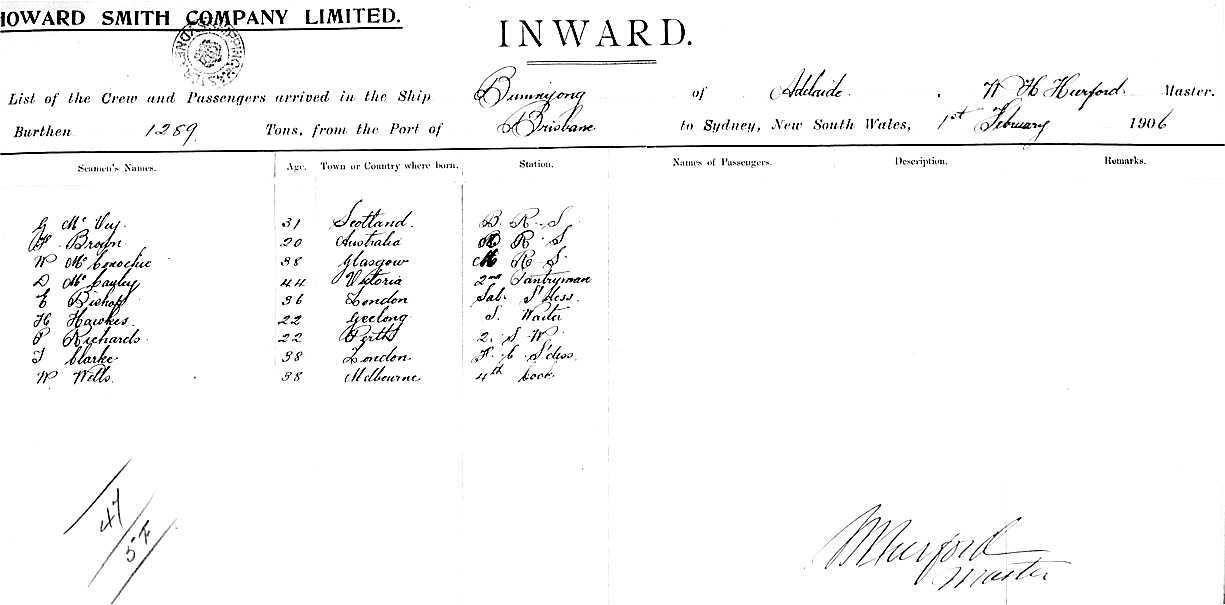 HOWARD SMITH COMPANY LIMITED.
INWARD.
List of the Crew and Passengers arrived in the Ship Buninyong of Adelaide. W H Hurford Master.
Burthen 1289 Tons, from the Port of Brisbane to Sydney, New South Wales, 1st February 1906
Seamen's Names. Age. Town or Country where born. Station. Names of Passengers. Description. Remarks.
G Mc Vey 31 Scotland B. R. S.
F. Brown 20 Australia R S
W McConochie 38 Glasgow M R S
D McCauley 44 Victoria 2nd Pantryman
E Bishop 36 London Sal. S'dess.
H Hawkes 22 Geelong S. Waiter
P Richards 22 Perth 2. S W
T Clarke 38 London F. C S'dess.
W Wells. 38 Melbourne 4th Cook
47
5 F
W Hurford
Master